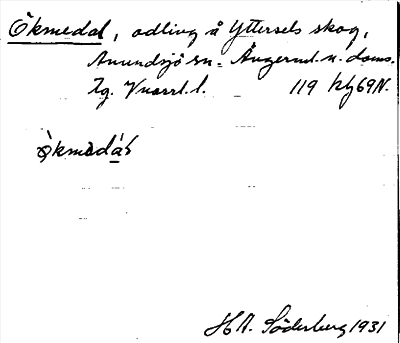 Ökmedal, odling å Yttersels skog,
Anundsjö sn. Ångerml. n. doms.
Tg. Vnorrl. l. 119 kbj 69 N.
ökmədáḷ
H.N. Söderberg 1931